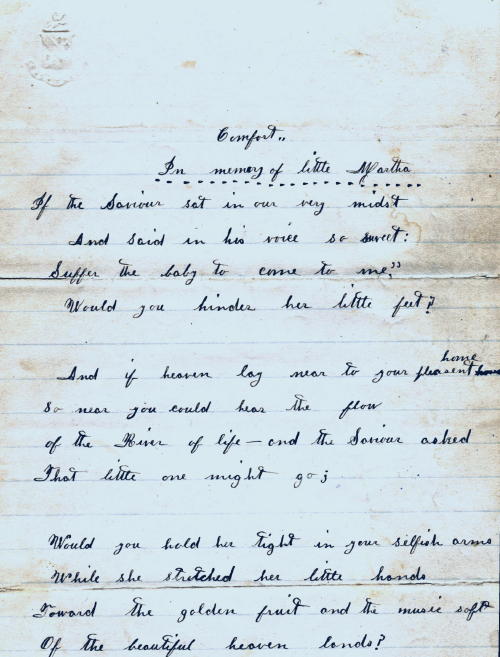 Comfort..
In memory of little Martha
If the Saviour sat in our very midst
And said in his voice so sweet:
Suffer the baby to come to me;"
Would you hinder her little feet?
And if heaven lay near to your pleasent home
So near you could hear the flow
of the River of life — and the Saviour asked
That little one might go;
Would you hold her tight in your selfish arms
While she stretched her little hands
Toward the golden fruit and the music soft
Of the beautiful heaven lands?